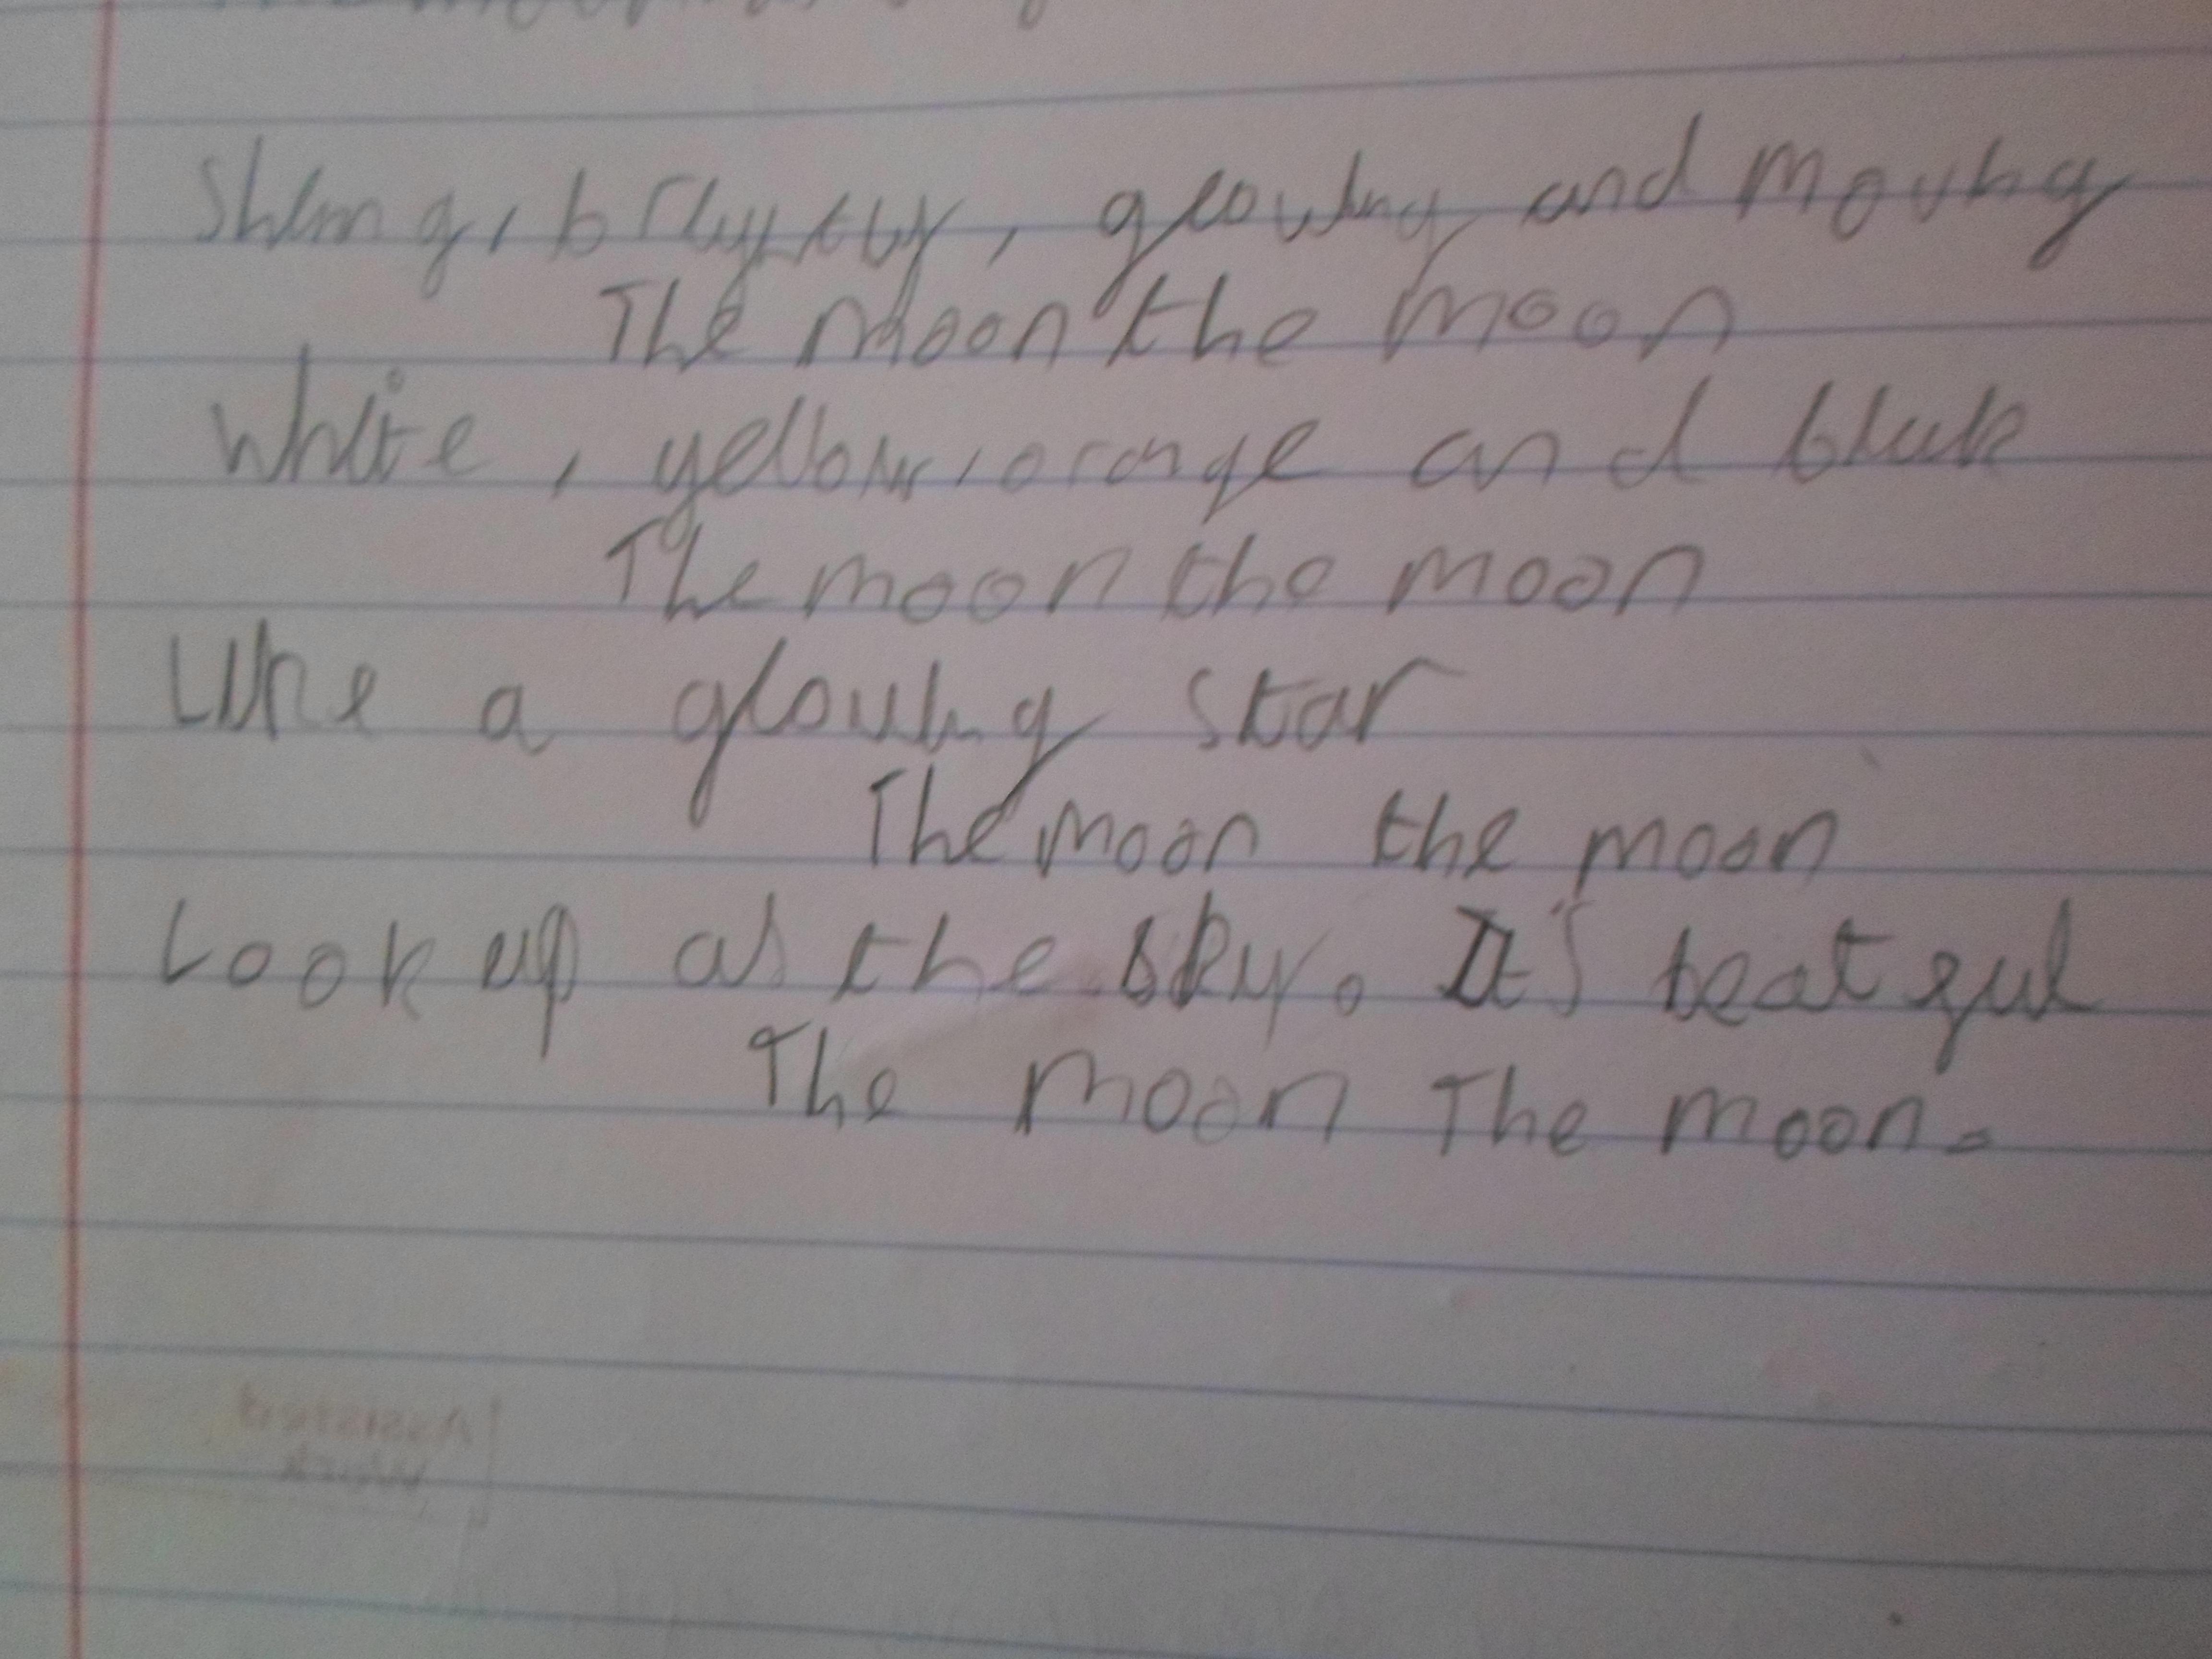 Shining, brightly, glowing and moving
The moon the moon
White, yellow, orange and black
The moon the moon
Like a glowing star
The moon the moon
Look up at the sky. It's beatiful
The moon The moon.
Assisted
Work